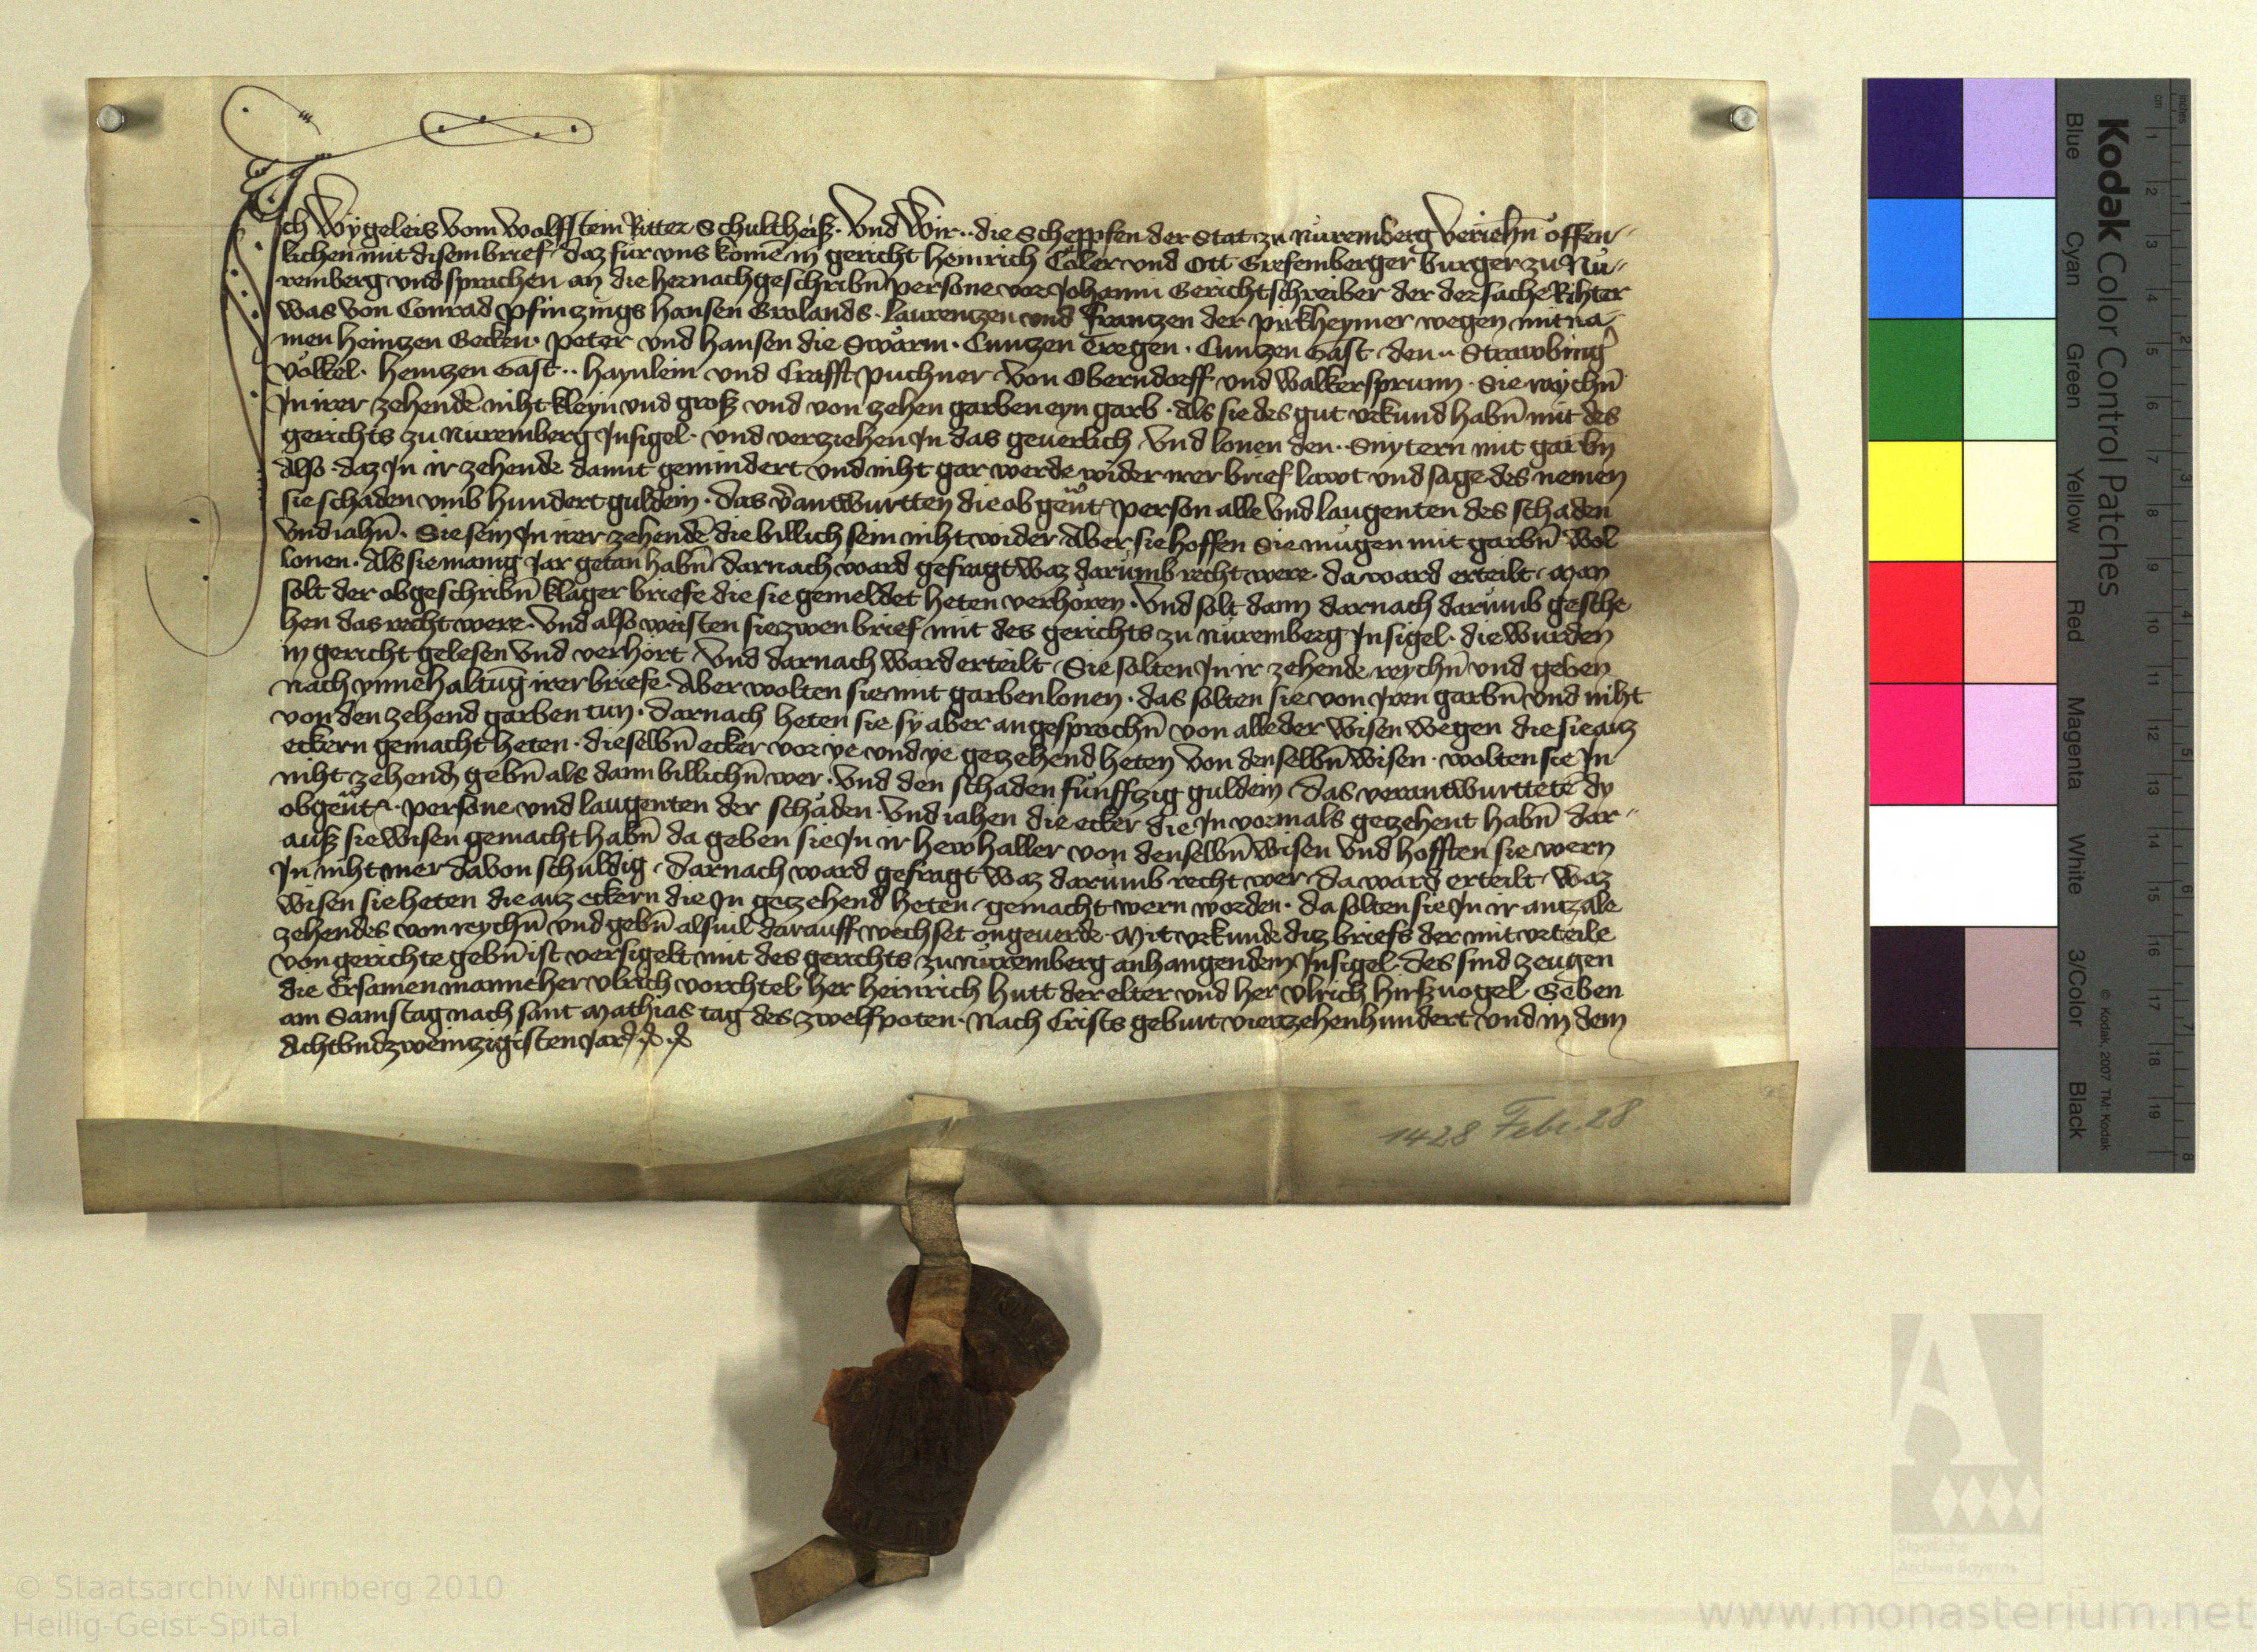 Ich Wygeleis vom Wolfstein Ritter Schultheiß · Vnd Wir ·· die Scheppfen der Stat zu Nuremberg Veriehn̄ offen-
lichen mit disem brief daz für vns komen̄ in gericht Heinrich Coler vnd Ott Grefemberger burger zu Nů-
remberg vnd sprachen an die hernachgeschribn̄ persone vor Johanni Gerichtschreiber der der sache Rihter
was von Conrad Pfintzings Hansen Grolands · Laurentzen vnd Frantzen der Pirkheymer wegen mit na-
men Heintzen Gecken · Peter vnd Hansen die Swarm · Cuntzen Tregen · Cuntzen Gast · den ·· Strawbing
Völkel · Heintzen Gast ·· Haynlein vnd Crafft Puchner · Von Oberndorff vnd Walkersprunn · Sie raychn̄
In irer zehendē niht kleyn vnd groß vnd von zehen garben eyn garb · Als sie des gut vrkund habn̄ mit des
gerichts zu Nuremberg Insigel · vnd verziehen In das geuerlich Vnd lonen den ·· Snytern mit garbn̄
Also · daz In ir zehende damit gemindert vnd niht gar werde wider irer brief lawt vnd sage des nemen
sie schaden vmb hundert guldein · das v̄antwurtten die obgen̄t person alle Vnd laugenten des schaden
Vnd iahn̄ · Sie sein In irer zehendē die billich sein niht wider Aber sie hoffen Sie mügen mit garbn̄ Wol
lonen · Als sie manig Jar getan habn̄ darnach ward gefragt Waz darümb recht were · da ward erteilt · Man
solt der obgeschribn̄ klager briefe die sie gemeldet heten verhören · Vnd solt dann darnach darümb gesche
hen das recht were · Vnd also weisten sie zwen brief mit des gerichts zu Nuremberg Insigel · die Wurden
in gericht gelesen Vnd verhört Vnd darnach Ward erteilt · Sie solten In ir zehende reychn̄ vnd geben
nach ynnehaltūg irer briefe · Aber wolten sie mit garben lonen · das solten sie von Iren garbn̄ Vnd niht
von den zehend garben tun · Darnach heten sie sy aber angesprochn̄ von alle der Wisen Wegen die sie auz
eckern gemacht heten · dieselbn̄ ecker vor ye vnd ye getzehend heten Von denselbn̄ Wisen · wolten sie In
niht zehend gebn̄ als dann billichn̄ wer · Vnd den schaden fünfftzig guldein · Das verantwurttetē dy
obgen̄t · persone vnd laugenten der schäden · Vnd iahen die ecker die In vormals getzehent habn̄ dar-
auß sie Wisen gemacht habn̄ da geben sie In ir hew haller von denselbn̄ Wisen Vnd hofften sie wern
In niht mer davon schuldig · Darnach ward gefragt Waz darümb recht wer · Da ward erteilt · Waz
Wisen sie heten die auz eckern die In getzehend heten · gemacht wern worden · da solten sie In ir antzale
zehendes von reychn̄ vnd gebn̄ als uil darauff wechset ongeuerde · Mit vrkunde ditz briefs der mit vrteile
von gerichte gebn̄ ist versigelt mit des gerichts zu Nůremberg anhangendem Insigel · Des sind zeugen
die Ersamen manne her Vlrich Vorchtel her Heinrich Hutt der elter vnd her Vlrich Hirßuogel · Geben
am Samstag nach sant Mathias tag des zwelfpoten · Nach Crists geburt viertzehenhundert Vnd in dem
Acht vnd zweintzigisten Jar
1428 Febr. 28
Kodak Color Control Patches
Blue Cyan Green Yellow Red Magenta White 3/Color Black
© Kodak, 2007 TM: Kodak
© Staatsarchiv Nürnberg 2010
Heilig-Geist-Spital
Staatliche
Archive Bayerns
www.monasterium.net